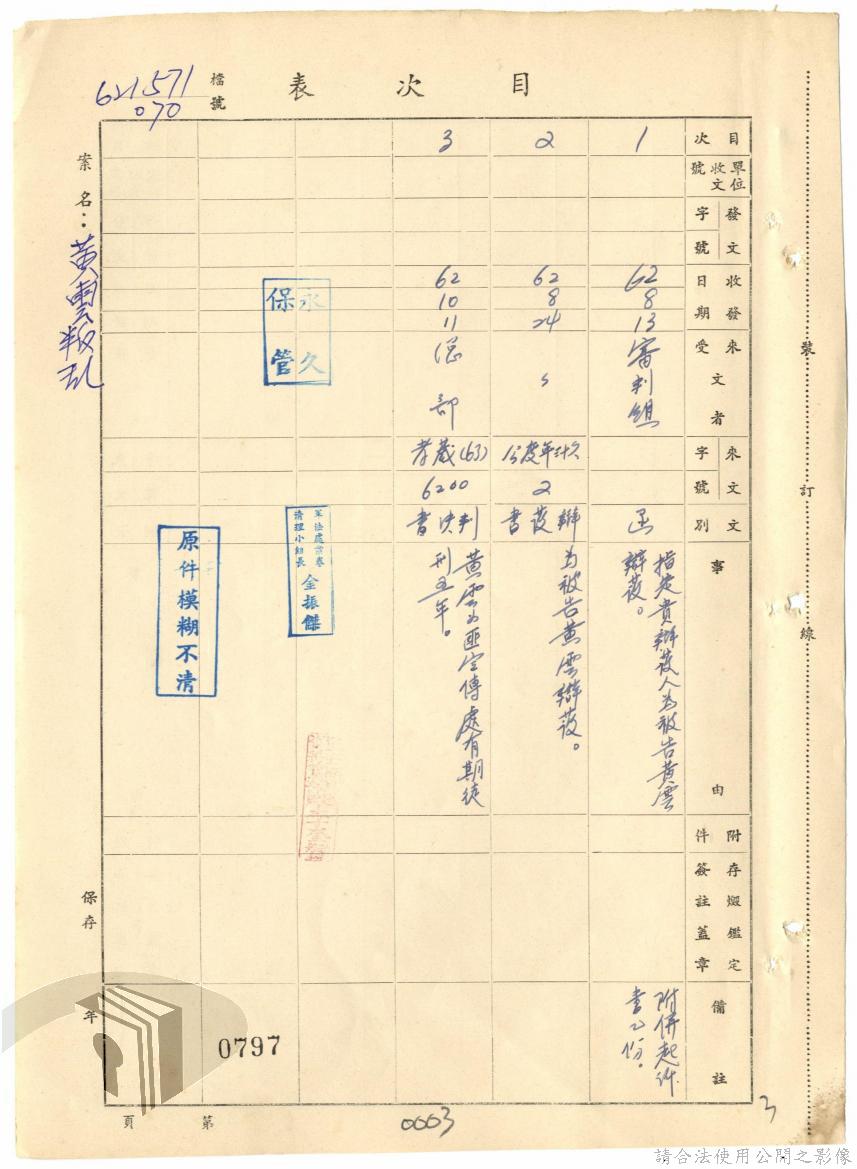 目次表
檔號
621.571
070
案名：黃雲叛乱
目次
單位收文號
發文字號
收發日期
來文受者
來文字號
文別
事由
附件
存燬鑑定簽註蓋章
備註
1
62
8
13
審判組
函
指定貴辯護人為被告黃雲
辯護。
附併起訴
書乙份。
2
62
8
24
2
書護辯
為被告黃雲辯護。
3
62
10
11
部
6200
書決判
黃雲為匪宣傳處有期徒
刑五年。
永久
保管
金振傑
原件模糊不清
裝
訂
線
保存
年
0797
第
頁
0003
3
請合法使用公開之影像